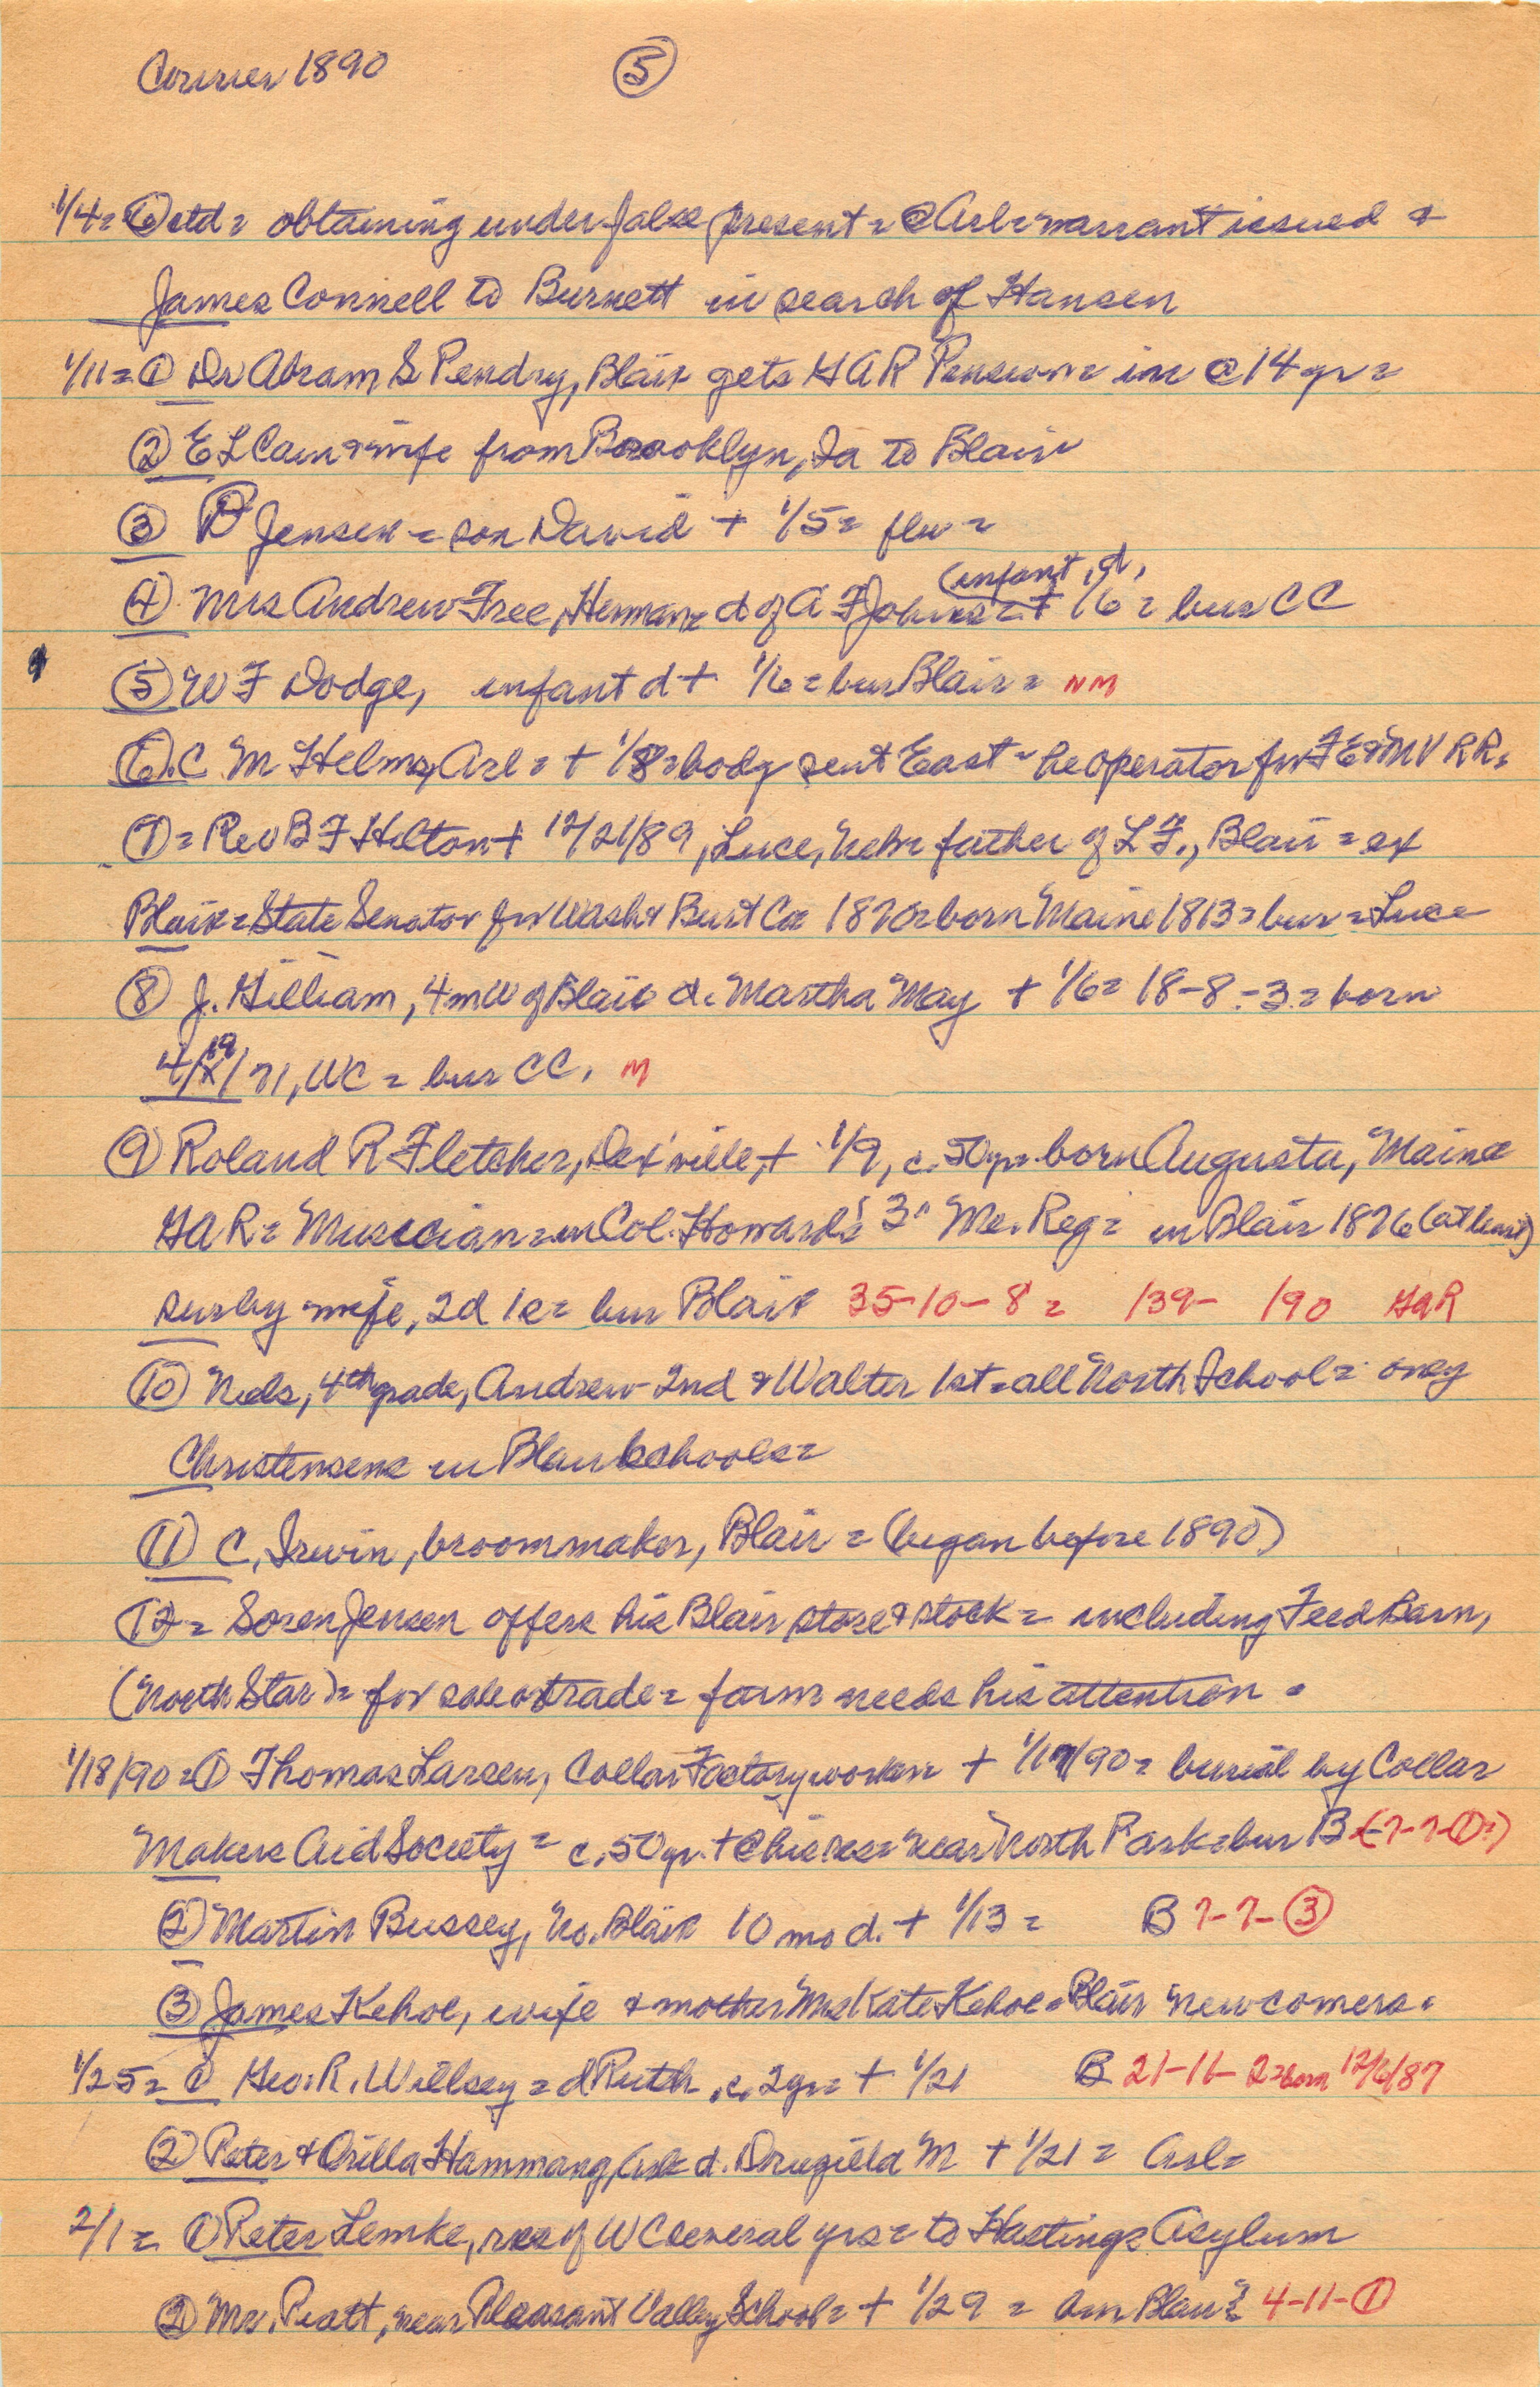 Courier 1890 ⑤
1/4= ⑥ctd= obtaining under false present= @ Arl= warrant issued &
James Connell to Burnett in search of Hansen
1/11= ① Dr Abram S Pendry, Blair gets GAR Pension= in @ 14 yr=
② E L Cain & wife from Brooklyn, Ia to Blair
③ P Jensen= son David + 1/5= flu=
(infant d,
④ Mrs Andrew Free, Herman= d of A F Johns= + 1/6= bur CC
⑤ W F Dodge, infant d + 1/6= bur Blair= NM
⑥ C M Helms, Arl= + 1/8= body sent East= he operator for FE&MV RR.
⑦= Rev B F Hilton + 12/21/89, Luce, Nebr father of L F., Blair= ex
Blair= State Senator for Wash & Burt Co 1870= born Maine 1813= bur= Luce
⑧ J. Gilliam, 4 m W of Blair d. Martha May + 1/6= 18-8-3= born
4/19/71, WC= bur CC. M
⑨ Roland R Fletcher, DeS'ville, + 1/9, c. 50 yr= born Augusta, Maine
GAR= Musician= in Col. Howard's 3" Me. Reg= in Blair 1876 (at least)
sur by wife, 2d 1s= bur Blair 35-10-8= 139- 190 GAR
⑩ Neils, 4th grade, Andrew 2nd & Walter 1st= all North School= only
Christensens in Blair schools=
⑪ C. Irwin, broommaker, Blair= (began before 1890)
⑫= Soren Jensen offers his Blair store & stock= including Feed Barn,
(North Star)= for sale or trade= farm needs his attention.
1/18/90= ① Thomas Larsen, Collar Factory worker + 1/17/90= burial by Collar
Makers Aid Society= c. 50 yr. + @ his res= near North Park= bur B (7-7-①?)
② Martin Bussey, No. Blair 10 mo d. + 1/13= B 7-7-③
③ James Kehoe, wife & mother Mrs Kate Kehoe= Blair newcomers.
1/25= ① Geo. R. Willsey= d Ruth, c. 2 yr= + 1/21 B 21-11-2= born 12/6/87
② Peter & Orilla Hammang, Arl= d. Druzilla M + 1/21= Arl=
2/1= ① Peter Lemke, res of WC several yrs= to Hastings Asylum
② Mr. Pratt, near Pleasant Valley School= + 1/29= Blair 4-11-①